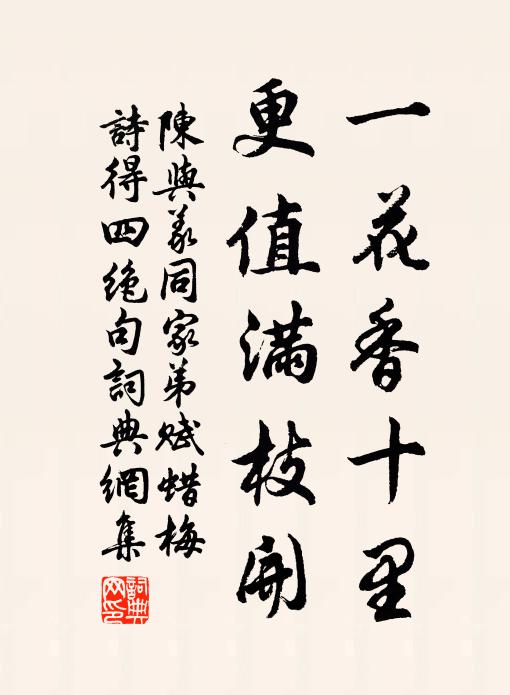 一花香十里
更值滿枝開
陳與義同家弟賦蜡梅
詩得四絕句詞典網集
詞典网印